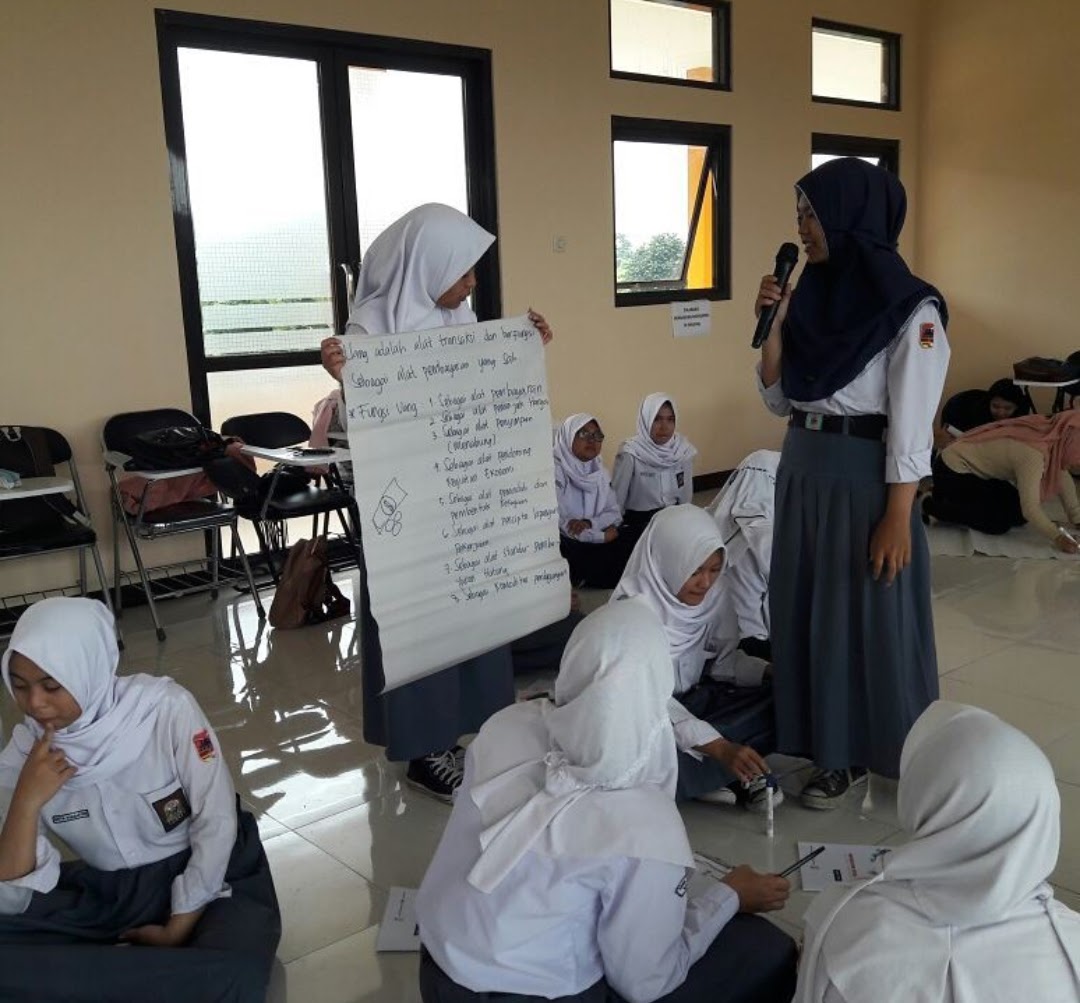 Uang adalah alat transaksi dan berfungsi
Sebagai alat pembayaran yang sah
* Fungsi Uang 1. Sebagai alat pembayaran
2. Sebagai alat
3. Sebagai alat penyimpan
(menabung)
4. Sebagai alat pendorong
kegiatan Ekonomi
5. Sebagai alat pemindah dan
pembentuk kekayaan
6. Sebagai alat pencipta lapangan
Pekerjaan
7. Sebagai alat standar pemba-
yaran Hutang
8. Sebagai komoditas perdagangan